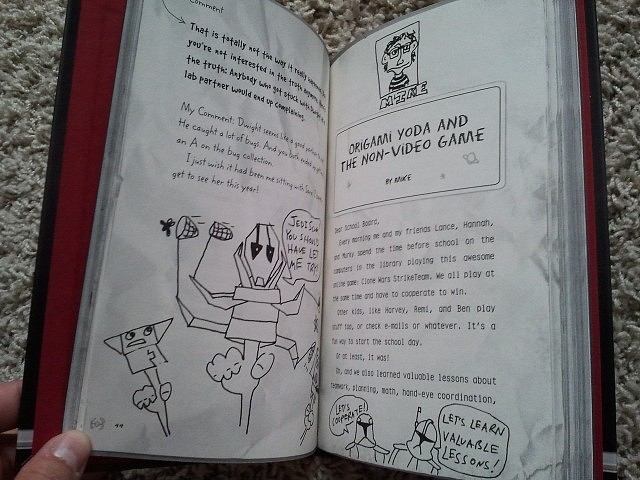 Comment
That is totally not the way it really
you're not interested in the truth
the truth: Anybody who got stuck with
lab partner would end up complaining.
My Comment: Dwight seems like a good
He caught a lot of bugs. And you both ended up
an A on the bug collection.
I just wish it had been me sitting with
get to see her this year!
JEDI SCUM
YOU SHOULD
HAVE LET
ME TRY!
44
MIKE
ORIGAMI YODA AND
THE NON-VIDEO GAME
BY MIKE
Dear School Board,
Every morning me and my friends Lance, Hannah,
and Murky spend the time before school on the
computers in the library playing this awesome
online game: Clone Wars StrikeTeam. We all play at
the same time and have to cooperate to win.
Other kids, like Harvey, Remi, and Ben play
stuff too, or check e-mails or whatever. It's a
fun way to start the school day.
Or at least, it was!
Oh, and we also learned valuable lessons about
teamwork, planning, math, hand-eye coordination,
LET'S
COOPERATE!
LET'S LEARN
VALUABLE
LESSONS!